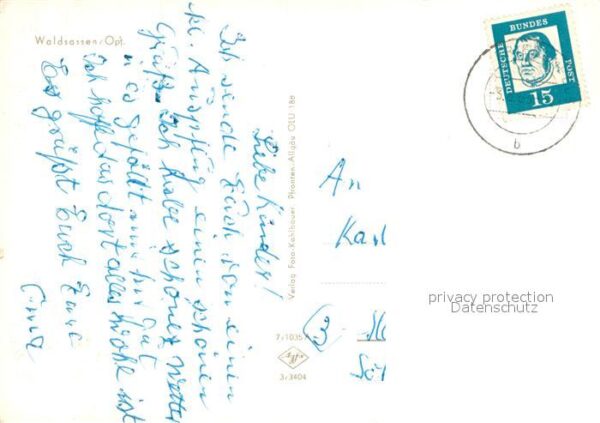 Waldsassen/Opf.
Liebe Kinder!
Ich sende Euch von einem
kl. Ausflug einen schönen
Gruß. Ich habe schönes Wetter
u. es gefällt mir gut
Ich hoffe das dort alles wohl ist
Es grüßt Euch Eure
Verlag Foto-Kahlbauer, Pfronten, Allgäu OLU 188
7/1035
Agfa
3/3404
DEUTSCHE BUNDES POST
15
b
An
Karl
privacy protection
Datenschutz